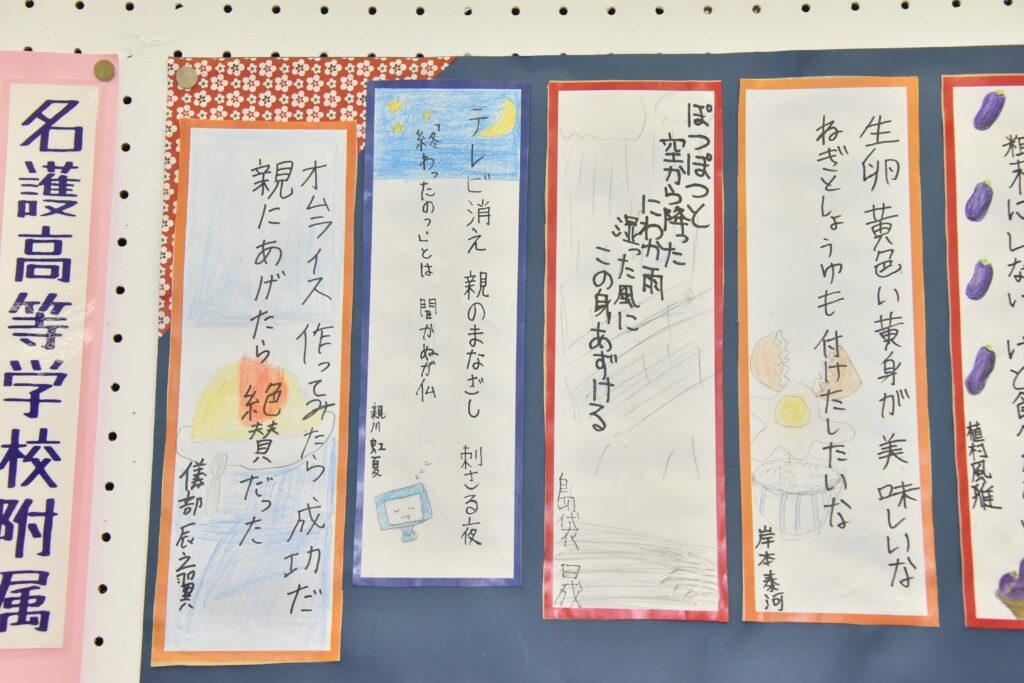 粗末にしない けど
植村風雅
生卵 黄色い黄身が 美味しいな
ねぎとしょうゆも 付けたしたいな
岸本泰河
ぽつぽつと
空から降った
にわか雨
湿った風に
この身あずける
島袋
テレビ消え 親のまなざし 刺さる夜
「終わったの?」とは 聞かぬが仏
親川 虹夏
オムライス 作ってみたら 成功だ
親にあげたら 絶賛だった
儀部辰之翼
名護高等学校附属